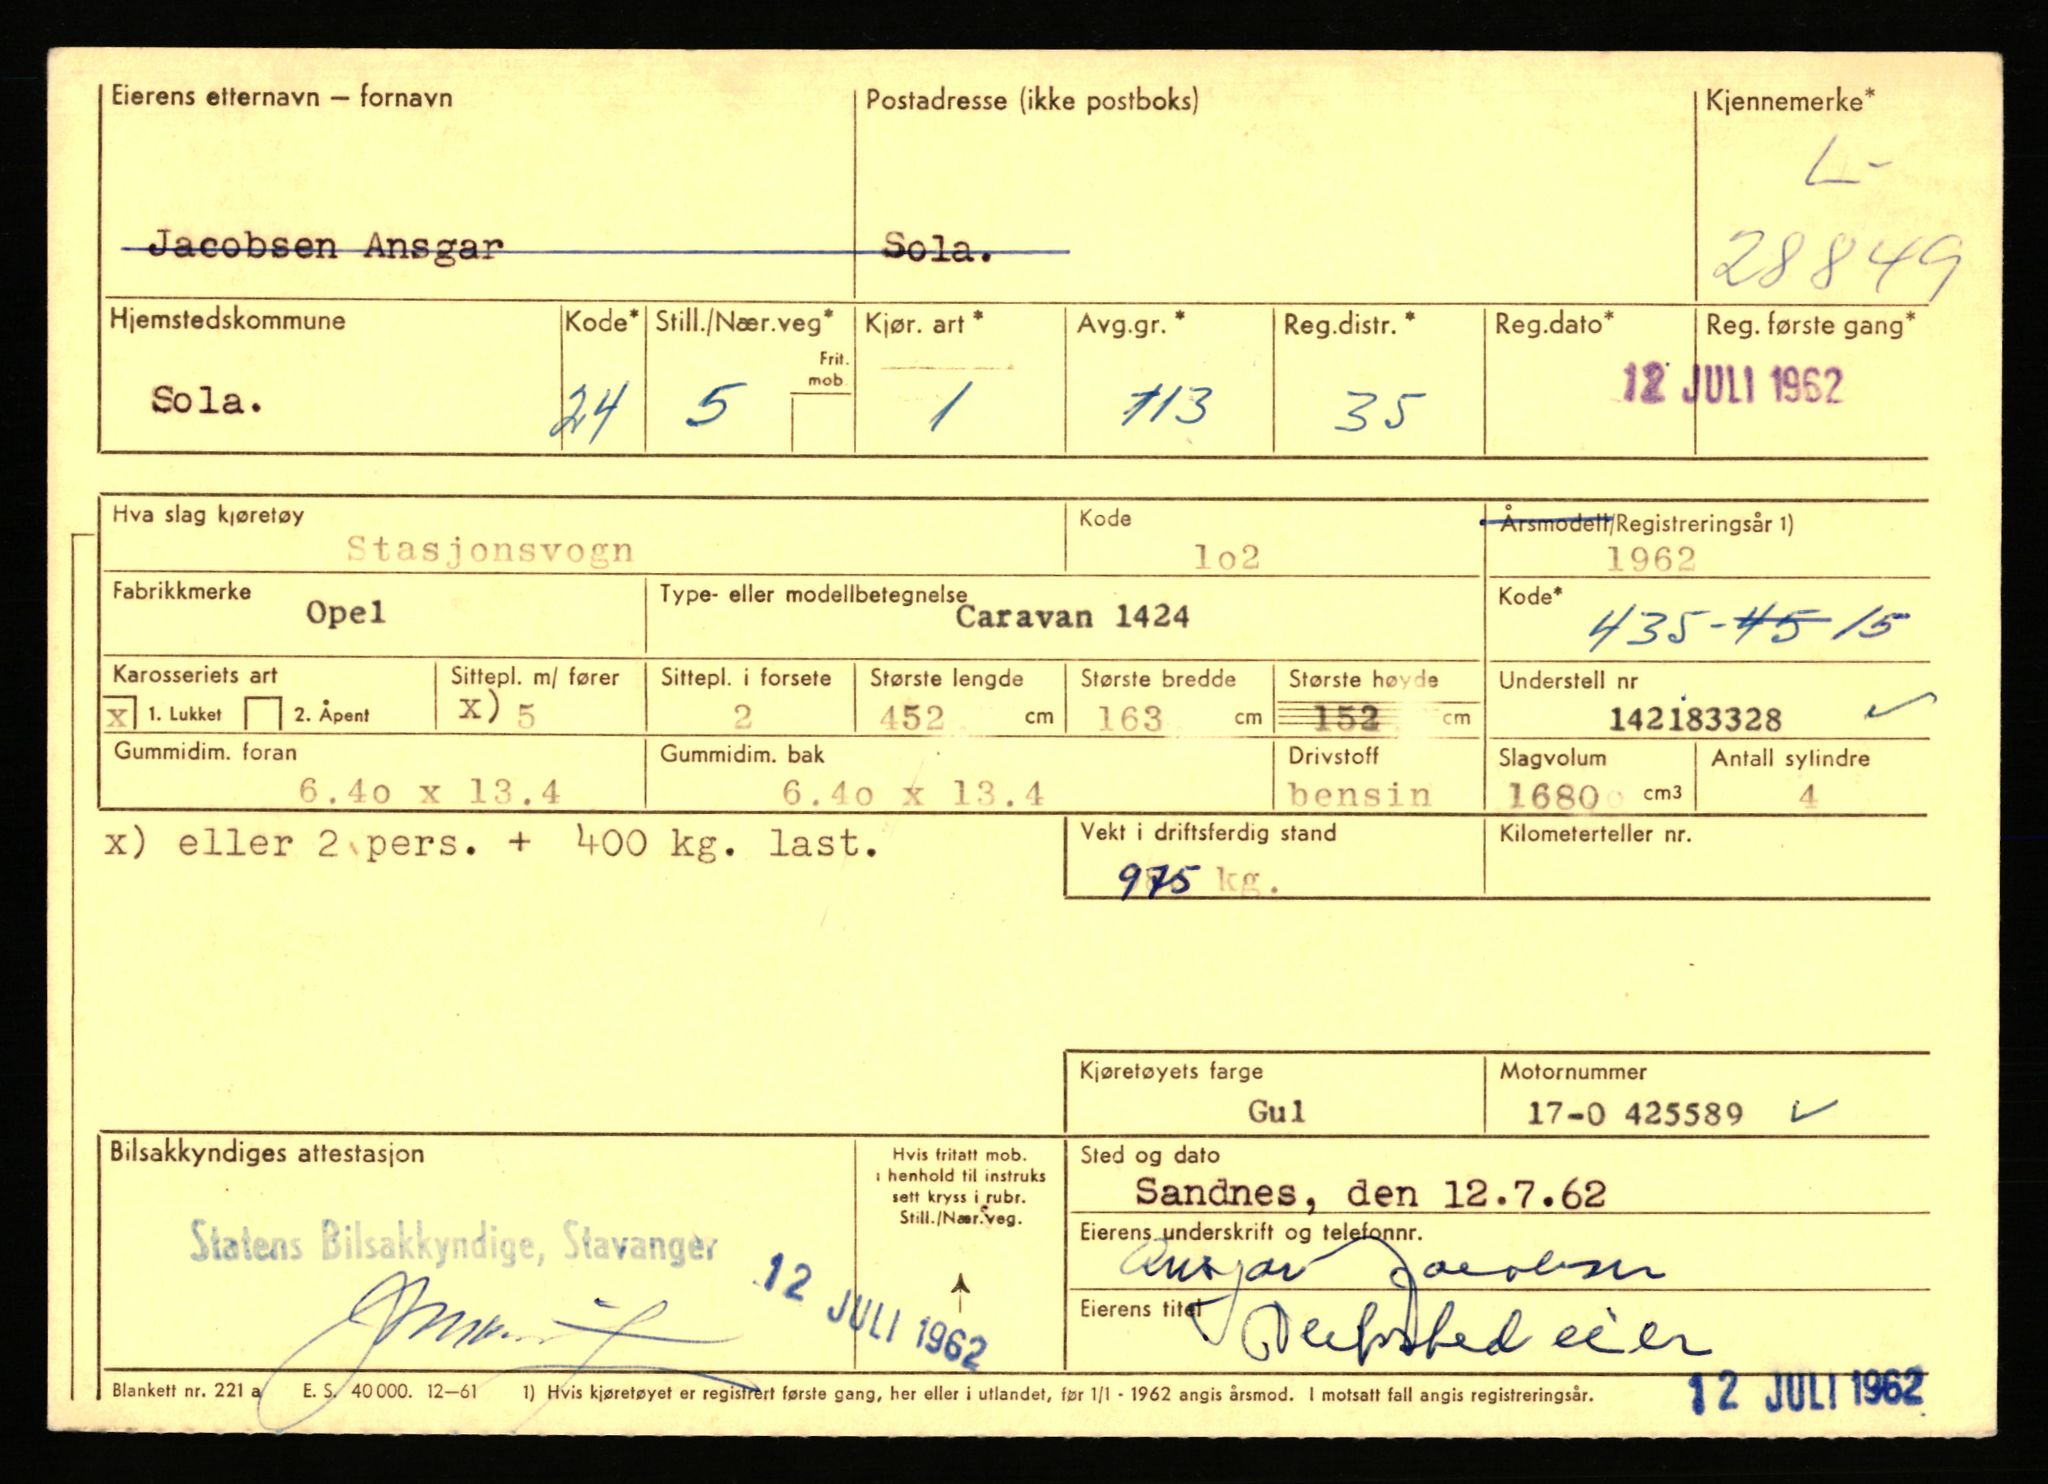 Eierens etternavn – fornavn Postadresse (ikke postboks) Kjennemerke*
L-
Jacobsen Ansgar Sola. 28849
Hjemstedskommune Kode* Still./Nær.veg* Kjør. art * Avg.gr. * Reg.distr. * Reg.dato* Reg. første gang*
Frit.
mob.
Sola. 24 5 1 113 35 12 JULI 1962
Hva slag kjøretøy Kode Årsmodell/Registreringsår 1)
Stasjonsvogn 1o2 1962
Fabrikkmerke Type- eller modellbetegnelse Kode*
Opel Caravan 1424 435-45 15
Karosseriets art Sittepl. m/ fører Sittepl. i forsete Største lengde Største bredde Største høyde Understell nr
x 1. Lukket 2. Åpent x) 5 2 452 cm 163 cm 152 cm 142183328
Gummidim. foran Gummidim. bak Drivstoff Slagvolum Antall sylindre
6.4o x 13.4 6.4o x 13.4 bensin 1680 cm3 4
x) eller 2 pers. + 400 kg. last. Vekt i driftsferdig stand Kilometerteller nr.
975 kg.
Kjøretøyets farge Motornummer
Gul 17-0 425589
Bilsakkyndiges attestasjon Hvis fritatt mob. Sted og dato
i henhold til instruks
sett kryss i rubr.
Still./Nær.veg.
Sandnes, den 12.7.62
Statens Bilsakkyndige, Stavanger Eierens underskrift og telefonnr.
12 JULI 1962 Ansgar Jacobsen
Eierens titel
Blankett nr. 221 a E. S. 40 000. 12–61 1) Hvis kjøretøyet er registrert første gang, her eller i utlandet, før 1/1 - 1962 angis årsmod. I motsatt fall angis registreringsår. 12 JULI 1962